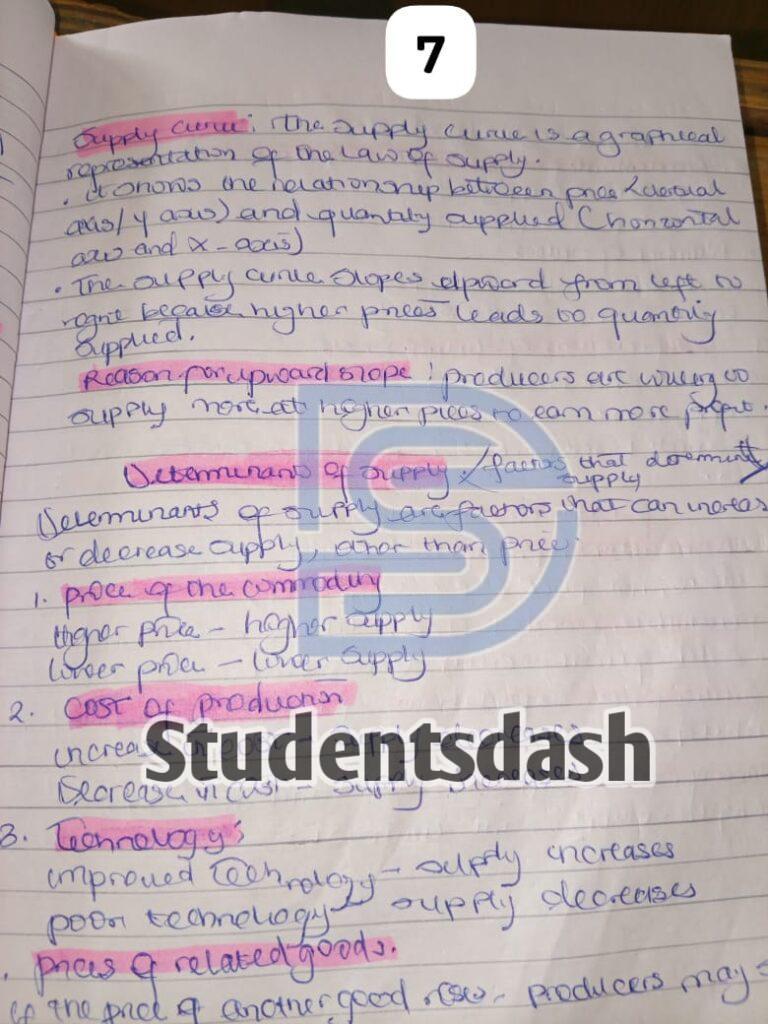 7
Supply curve: The supply curve is a graphical
representation of the law of supply.
. It shows the relationship between price (vertical
axis/y axis) and quantity supplied (horizontal
axis and x-axis)
. The supply curve slopes upward from left to
right because higher prices leads to quantity
supplied.
Reason for upward slope: producers are willing to
supply more at higher prices to earn more profit.
Determinants of supply / factors that determine
supply
Determinants of supply are factors that can increase
or decrease supply, other than price.
1. price of the commodity
Higher price - higher supply
lower price - lower supply
2. Cost of production
increase in
Studentsdash
Decrease in cost - supply
3. Technology:
improved Technology - supply increases
poor technology - supply decreases
. prices of related goods.
if the price of another good rises - producers may